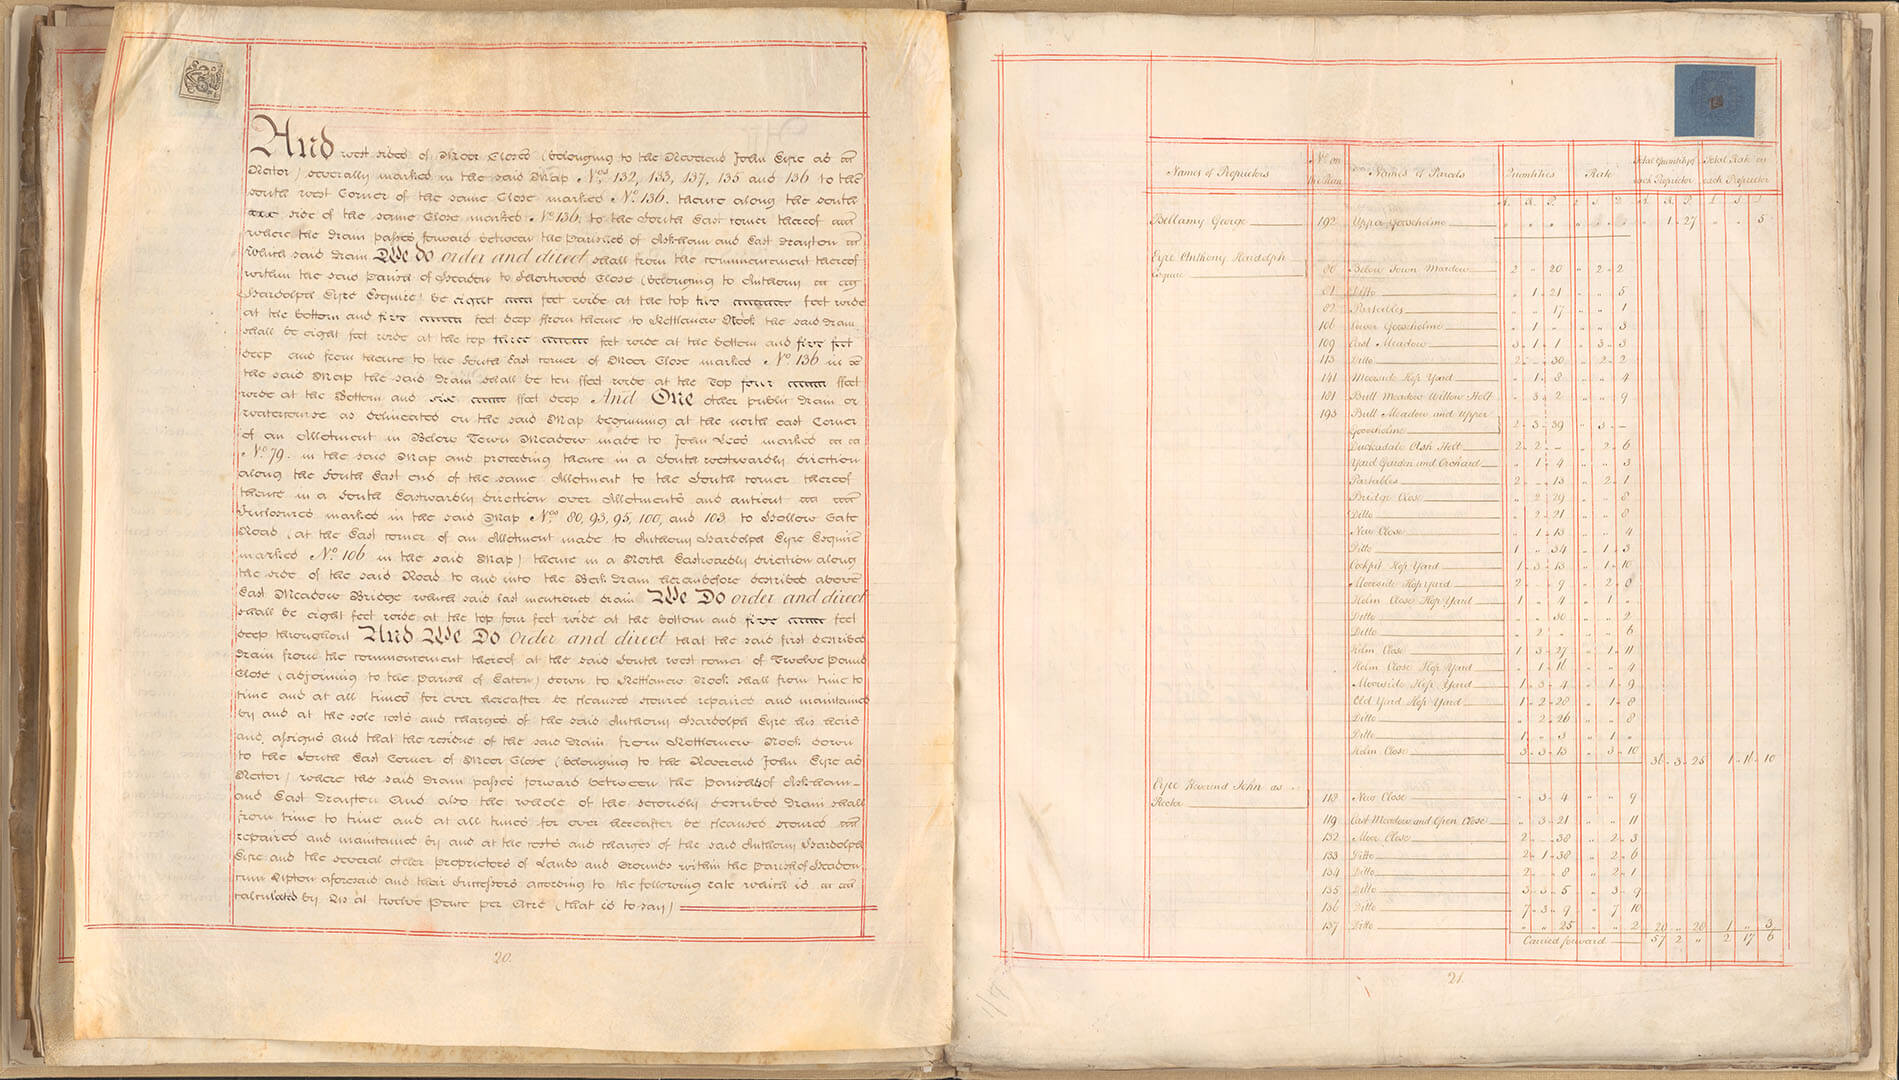 And west sides of Moor Closes (belonging to the Reverend John Eyre as
Rector) severally marked in the said Map Nos. 132, 133, 137, 135 and 136 to the
south west Corner of the same Close marked No. 136. thence along the south
side of the same Close marked No. 136, to the South East corner thereof
where the drain passes forward between the Parishes of Askham and East Drayton
which said drain We do order and direct shall from the commencement thereof
within the said Parish of Headon to Shortwood Close (belonging to Anthony
Hardolph Eyre Esquire) be eight feet wide at the top two feet wide
at the bottom and five feet deep from thence to Nettlemew Nook the said drain
shall be eight feet wide at the top three feet wide at the bottom and five feet
deep and from thence to the South East corner of Moor Close marked No. 136 in
the said Map the said drain shall be ten ffeet wide at the Top four ffeet
wide at the Bottom and six ffeet deep And One other public drain or
watercourse as delineated on the said Map beginning at the north east Corner
of an Allotment in Below Town Meadow made to John Lees marked
No. 79. in the said Map and proceeding thence in a South westwardly direction
along the South East end of the same Allotment to the South corner thereof
thence in a South Eastwardly direction over Allotments and antient
Inclosures marked in the said Map Nos. 80, 93, 95, 100, and 103 to Hollow Gate
Road (at the East corner of an Allotment made to Anthony Hardolph Eyre Esquire
marked No. 106 in the said Map) thence in a North Eastwardly direction along
the side of the said Road to and into the Beck drain hereinbefore described above
East Meadow Bridge which said last mentioned drain We Do order and direct
shall be eight feet wide at the top four feet wide at the bottom and five feet
deep throughout And We Do Order and direct that the said first described
drain from the commencement thereof at the said South west corner of Twelve Pound
Close (adjoining to the Parish of Eaton) down to Nettlemew Nook shall from time to
time and at all times for ever hereafter be cleansed scoured repaired and maintained
by and at the sole costs and charges of the said Anthony Hardolph Eyre his heirs
and assigns And that the residue of the said drain from Nettlemew Nook down
to the South East Corner of Moor Close (belonging to the Reverend John Eyre as
Rector) where the said drain passes forward between the Parishes of Askham
and East Drayton And also the whole of the secondly described drain shall
from time to time and at all times for ever hereafter be cleansed scoured
repaired and maintained by and at the costs and charges of the said Anthony Hardolph
Eyre and the several other Proprietors of Lands and Grounds within the Parish of Headon
cum Upton aforesaid and their Successors according to the following rate which is
calculated by Us at twelve Pence per Acre (that is to say)
20.
Names of Proprietors No. on the Plan Names of Parcels Quantities Rate Total Quantity of each Proprietor Total Rate on each Proprietor
A. R. P. £ S D A. R. P. £ S D
Bellamy George 192 Upper Gooseholme " " " " " " " 1 27 " " 5
Eyre Anthony Hardolph
Esquire 80 Below Town Meadow 2 " 20 " 2 2
81 Ditto " 1 21 " " 5
82 Partables " " 17 " " 1
106 Lower Gooseholme " 1 " " " 3
109 East Meadow 3 1 1 " 3 3
113 Ditto 2 " 30 " 2 2
141 Moorside Hop Yard " 1 8 " " 4
181 Bull Meadow Willow Holt " 3 2 " " 9
193 Bull Meadow and Upper
Gooseholme 2 3 39 " 3 "
Duckadale Ash Holt 2 2 " " 2 6
Yard Garden and Orchard " 1 4 " " 3
Partables 2 " 13 " 2 1
Bridge Close " 2 29 " " 8
Ditto " 2 21 " " 8
New Close " 1 13 " " 4
Ditto 1 " 34 " 1 3
Cockpit Hop Yard 1 3 13 " 1 10
Moorside Hop Yard 2 " 9 " 2 "
Helm Close Hop Yard 1 " 4 " 1 "
Ditto " " 30 " " 2
Ditto " 2 " " " 6
Helm Close 1 3 27 " 1 11
Helm Close Hop Yard " 1 16 " " 4
Moorside Hop Yard 1 3 4 " 1 9
Old Yard Hop Yard 1 2 28 " 1 8
Ditto " 2 26 " " 8
Ditto 1 " 3 " 1 "
Helm Close 3 3 13 " 3 10 36 3 25 1 16 10
Eyre Reverend John as
Rector 118 New Close " 3 4 " " 9
119 East Meadow and Open Close " 3 21 " " 11
132 Moor Close 2 " 38 " 2 3
133 Ditto 2 1 38 " 2 6
134 Ditto 2 " 8 " 2 1
135 Ditto 3 3 5 " 3 9
136 Ditto 7 3 9 " 7 10
137 Ditto " " 25 " " 2 20 " 28 1 " 3
Carried forward 57 2 " 2 17 6
21.